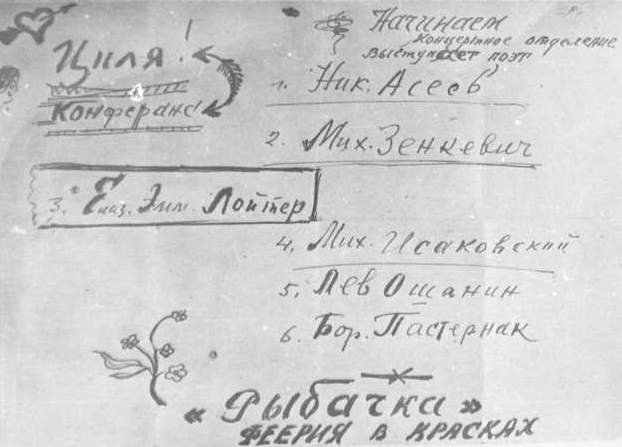 Циля!
Конферанс!
Начинаем
Концертное отделение
Выступает поэт
1. Ник. Асеев
2. Мих. Зенкевич
3. Елиз. Эмм. Лойтер
4. Мих. Исаковский
5. Лев Ошанин
6. Бор. Пастернак
« Рыбачка »
ФЕЕРИЯ В КРАСКАХ